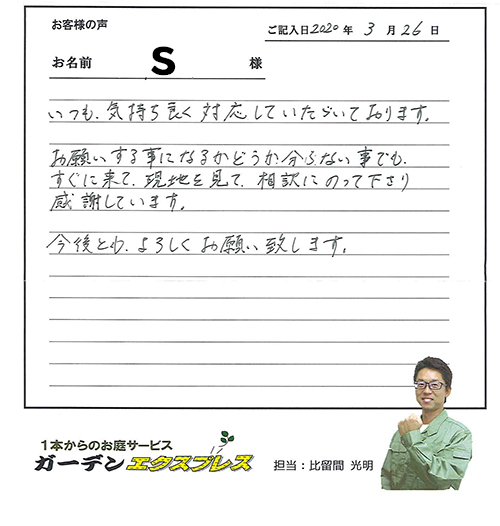 お客様の声
ご記入日2020年 3月26日
お名前 S 様
いつも、気持ち良く対応していただいております。
お願いする事になるかどうか分らない事でも、
すぐに来て、現地を見て、相談にのって下さり
感謝しています。
今後とも、よろしくお願い致します。
1本からのお庭サービス
ガーデンエクスプレス
担当：比留間 光明